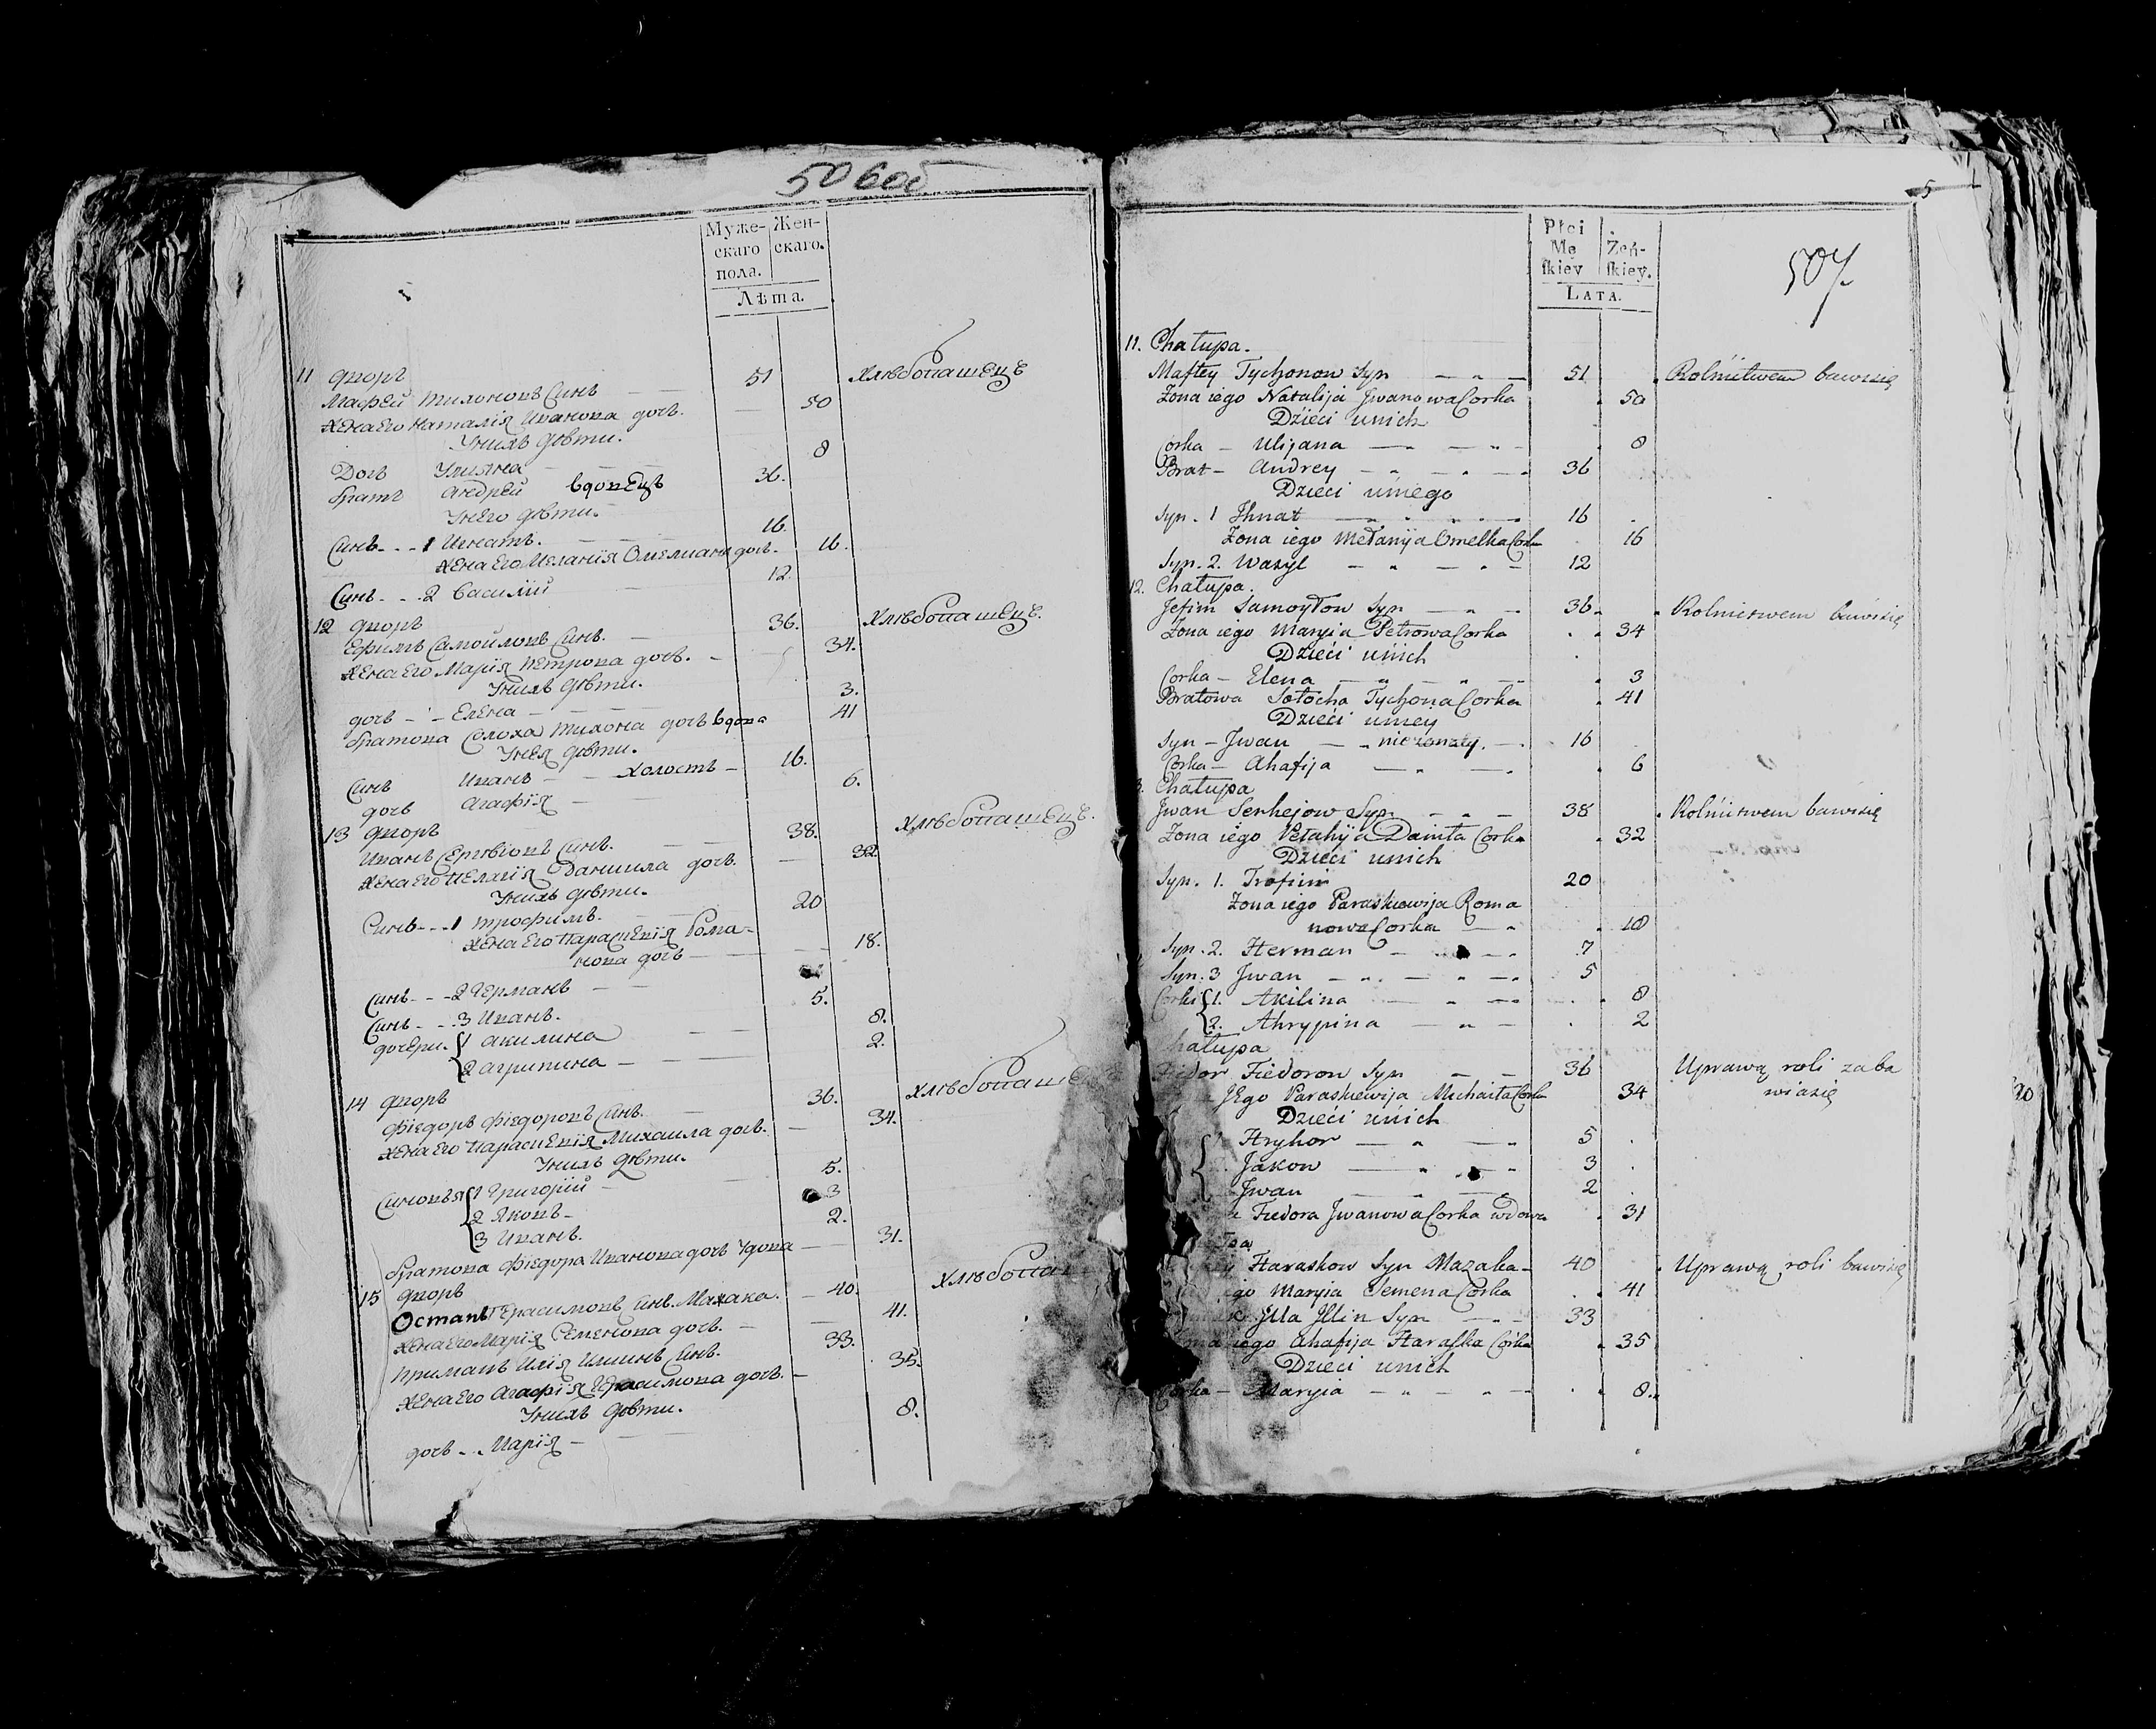 506об
Муже-
скаго
пола.
Жен-
скаго.
Лѣта.
11 дворъ
Мафей Тихоновъ Синъ 51 хлѣбопашецъ
жена его Наталія Иванова дочь 50
У нихъ дѣти.
Дочь Улияна 8
братъ Андрей вдовецъ 36.
У него дѣти.
Синъ 1 Игнатъ. 16.
жена его Меланія Омелиана дочь. 16.
Синъ 2 Василій 12.
12 дворъ
Ефимъ Самойловъ Синъ. 36. хлѣбопашецъ.
жена его Марія Петрова дочь. 34.
У нихъ дѣти.
дочь Елена 3.
братова Солоха Тихона дочь вдова 41
У нея дѣти.
Синъ Иванъ холостъ 16.
дочь Агафія 6.
13 дворъ
Иванъ Сергѣіовъ Синъ. 38. хлѣбопашецъ.
жена его Пелагія Даниила дочь 32.
У нихъ дѣти.
Синъ 1 Трофимъ. 20
жена его Парасцевія Рома-
нова дочь 18.
Синъ 2 Германъ
Синъ 3 Иванъ. 5.
дочери 1 Акилина 8.
2 Агрипина 2.
14 дворъ
Фіедоръ Фіедоровъ Синъ. 36. хлѣбопаше
жена его Парасцевія Михаила дочь. 34.
У нихъ дѣти.
Синовья 1 Григорій 5.
2 Яковъ 3
3 Иванъ. 2.
братова Фіедора Иванова дочь удова 31.
15 дворъ
Остапъ Герасимовъ Синъ. Мазака. 40. хлѣбопа
жена его Марія Семенова дочь. 41.
примакъ Илія Илинъ Синъ. 33.
жена его Агафія Герасимова дочь. 35.
У нихъ дѣти.
дочь Марія 8.
5
507.
Płci
Mę
skiey
Żeń-
skiey.
LATA.
11. Chałupa.
Maftey Tychonow Syn 51 Rolnictwem bawisię
Zona iego Natalija Jwanowa Corka 50
Dzieci unich
Corka Ulijana 8
Brat Andrey 36
Dzieci uniego
Syn. 1 Ihnat 16
Zona iego Mełanyja Omelka Corka 16
Syn. 2. Wasyl 12
12. Chałupa.
Jefim Samoyłow Syn 36. Rolnictwem bawisię
Zona iego Maryia Petrowa Corka 34
Dzieci unich
Corka Elena 3
Bratowa Sołocha Tychona Corka 41
Dzieci uniey
Syn Jwan niezonaty. 16
Corka Ahafija 6
3. Chałupa
Jwan Serhejow Syn 38 Rolnictwem bawisię
Zona iego Pelahija Daniła Corka 32
Dzieci unich
Syn. 1. Trofim 20
Zona iego Paraskewija Roma
nowa Corka 18
Syn. 2. Herman 7
Syn. 3 Jwan 5
Corki 1. Akilina 8
2. Ahrypina 2
hałupa
Fiedor Fiedorow Syn 36 Uprawą roli zaba
JEgo Paraskiewija Michaiła Corka 34 wiasię
Dzieci unich
1. Hryhor 5
Jakow 3
Jwan 2
Fiedora Jwanowa Corka wdowa 31
pa
Haraskow Syn Mazaka 40 Uprawą roli bawisię
iego Maryia Semena Corka 41
Jlla Jllin Syn 33
iego Ahafija Haraska Corka 35
Dzieci unich
Corka Maryia 8.